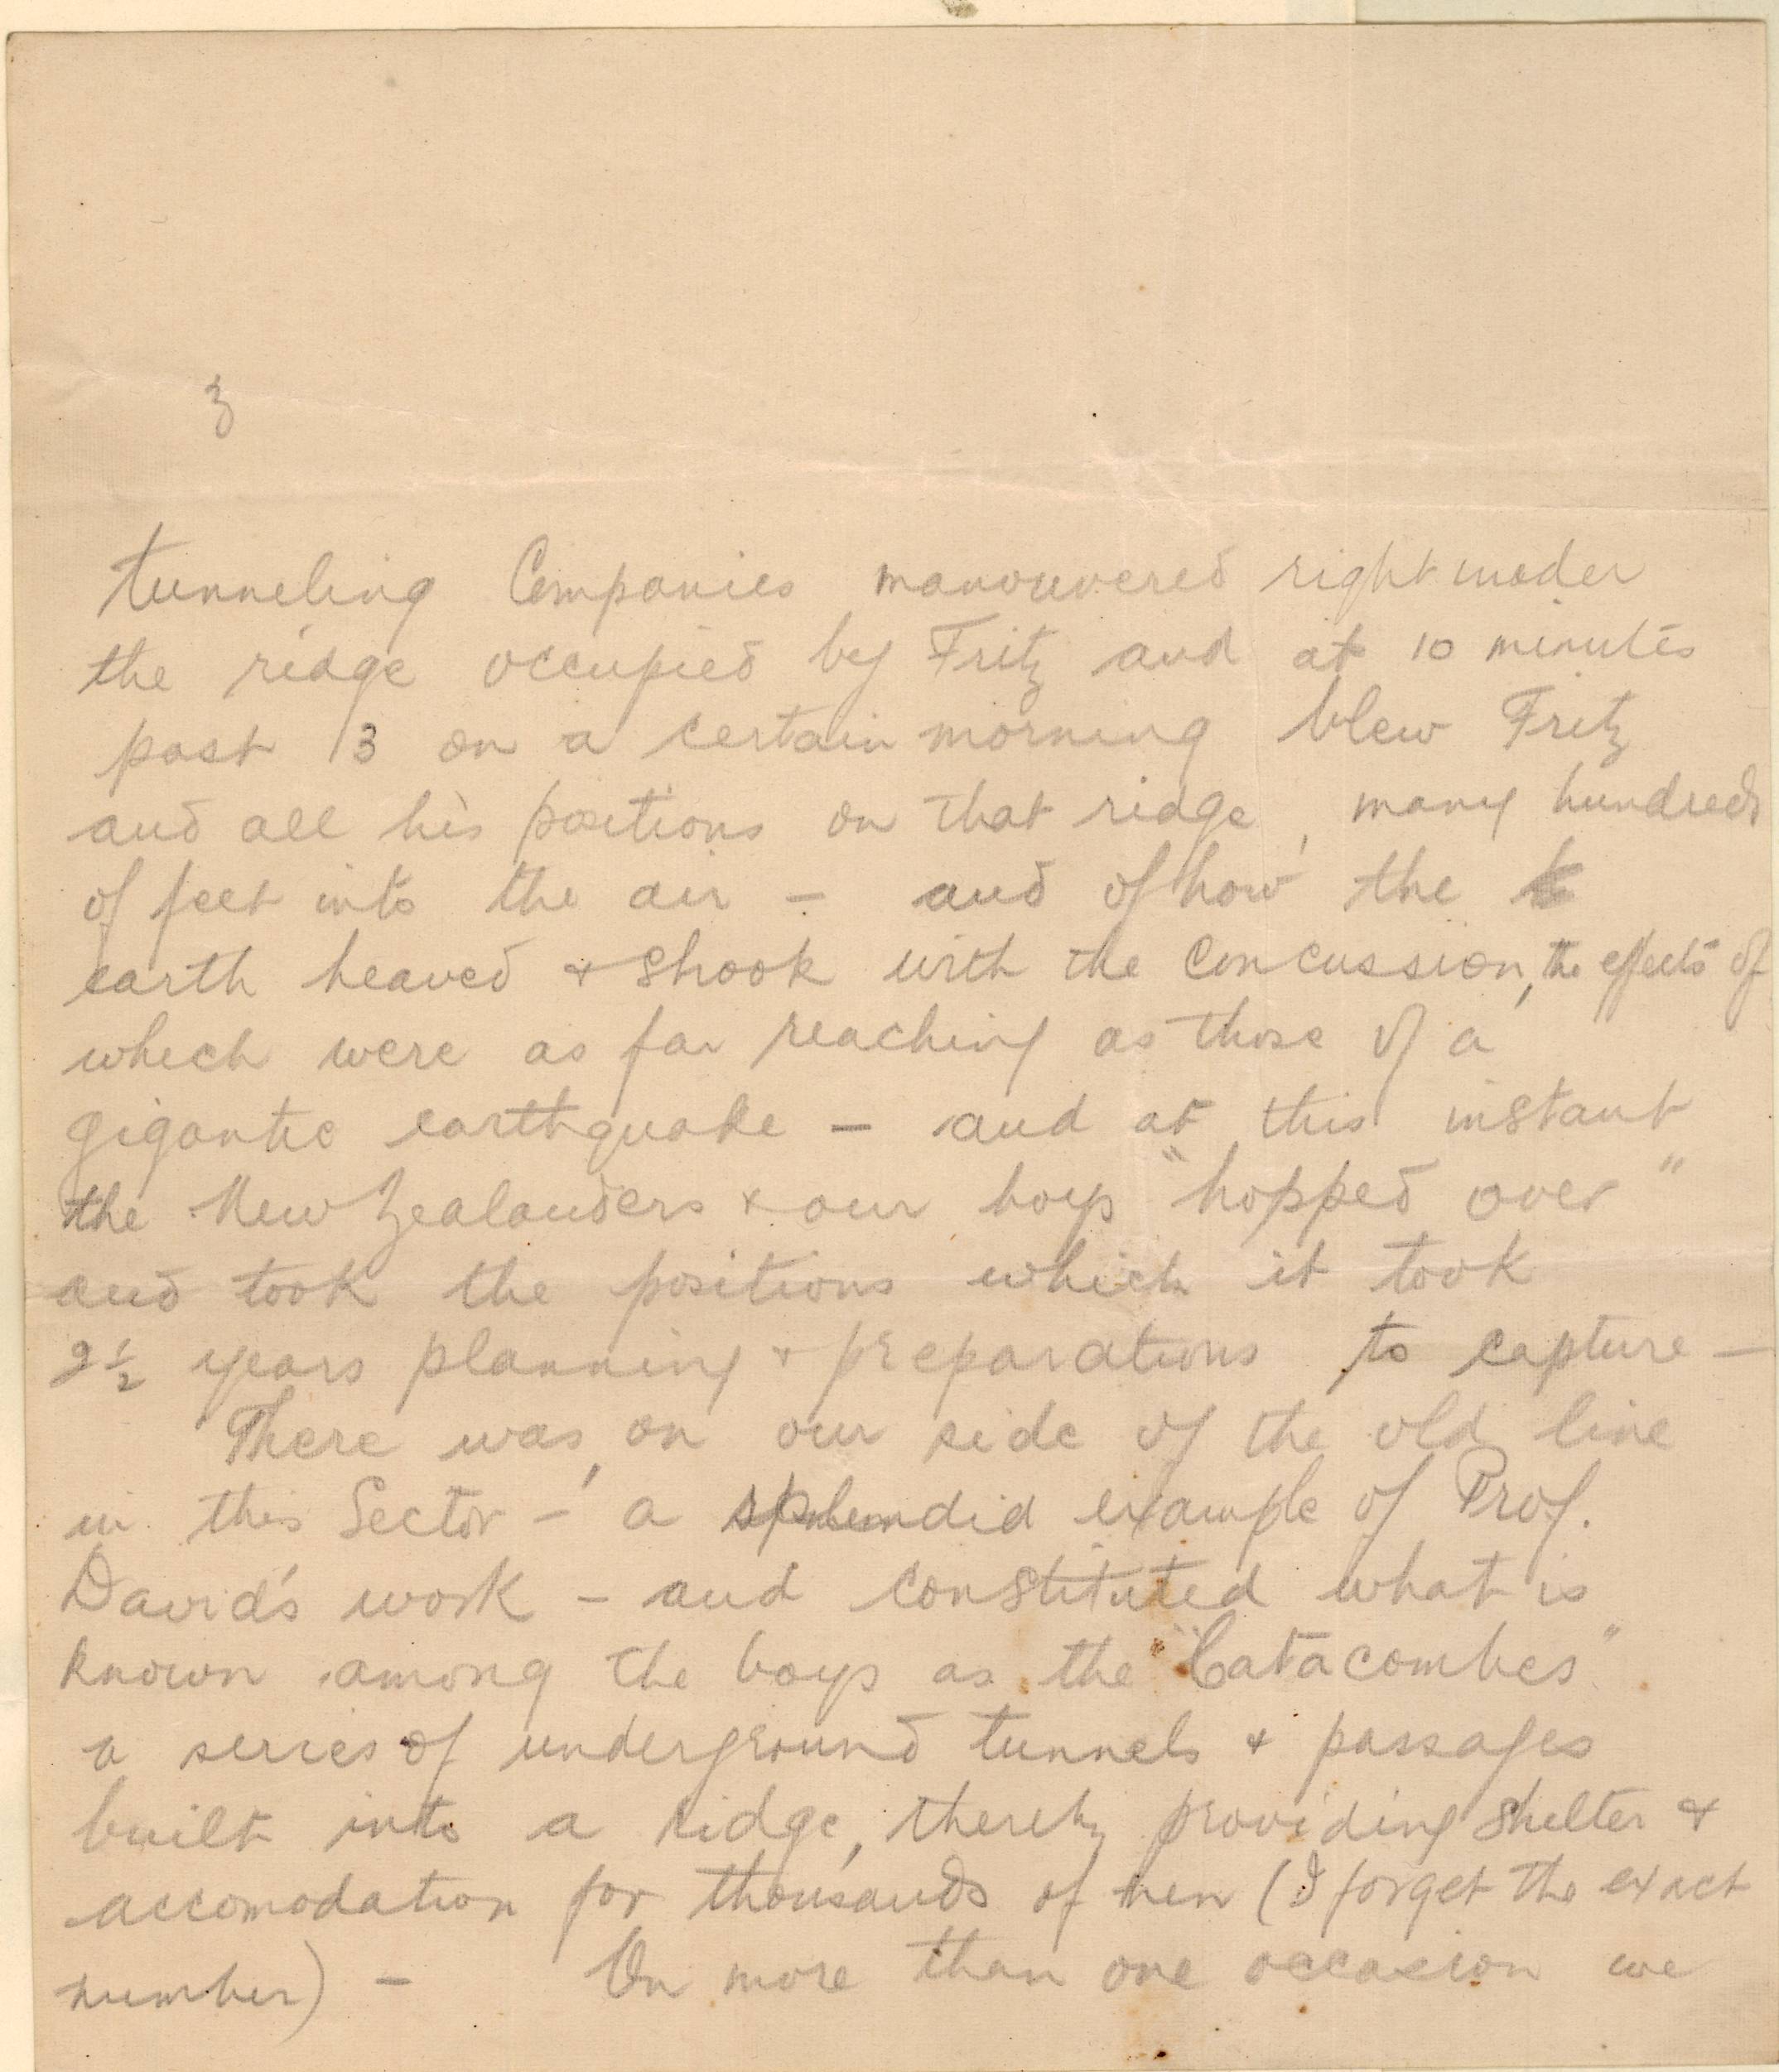 3
tunneling Companies manouvered right under
the ridge occupied by Fritz and at 10 minutes
past 3 on a certain morning blew Fritz
and all his positions on that ridge, many hundreds
of feet into the air – and of how the
earth heaved & shook with the concussion, the effects of
which were as far reaching as those of a
gigantic earthquake – and at this instant
the New Zealanders & our boys "hopped over"
and took the positions which it took
2½ years planning & preparations to capture –
There was, on our side of the old line
in this Sector – a splendid example of Prof.
David's work – and constituted what is
known among the boys as the "Catacombes"
a series of underground tunnels & passages
built into a ridge, thereby providing shelter &
accomodation for thousands of men (I forget the exact
number) – On more than one occasion we